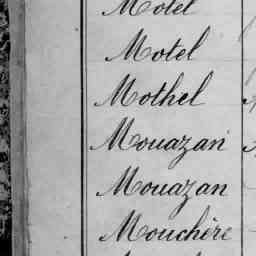 Motel
Motel
Mothel
Mouazan
Mouazan
Mouchère